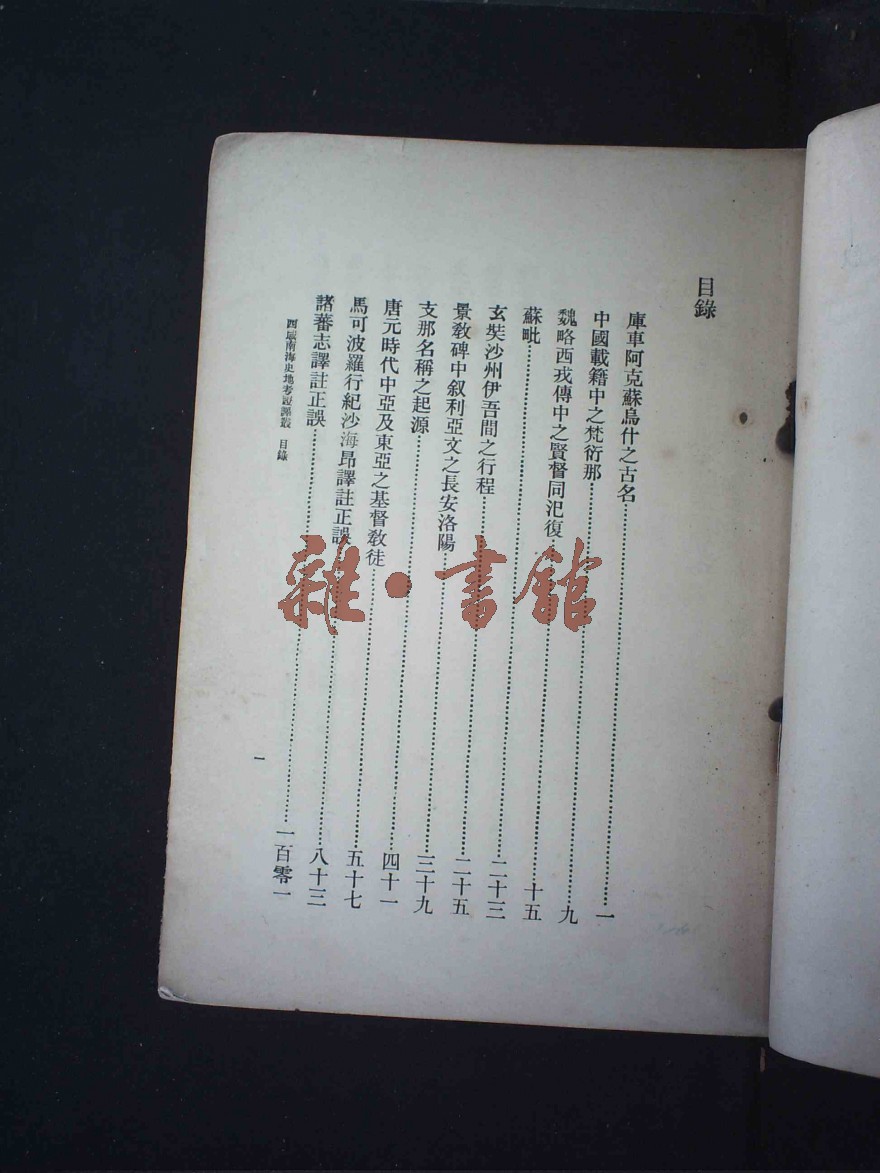 目錄
庫車阿克蘇烏什之古名……一
中國載籍中之梵衍那……九
魏略西戎傳中之賢督同汜復……十五
蘇毗……二十三
玄奘沙州伊吾間之行程……二十五
景敎碑中叙利亞文之長安洛陽……三十九
支那名稱之起源……四十一
唐元時代中亞及東亞之基督敎徒……五十七
馬可波羅行紀沙海昂譯註正誤……八十三
諸蕃志譯註正誤……一百零一
西域南海史地考證譯叢 目錄
一
雜·書館